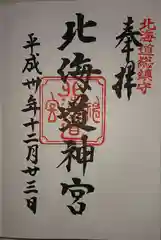 北海道総鎮守
奉拝
北海道神宮
平成卅年十二月廿三日